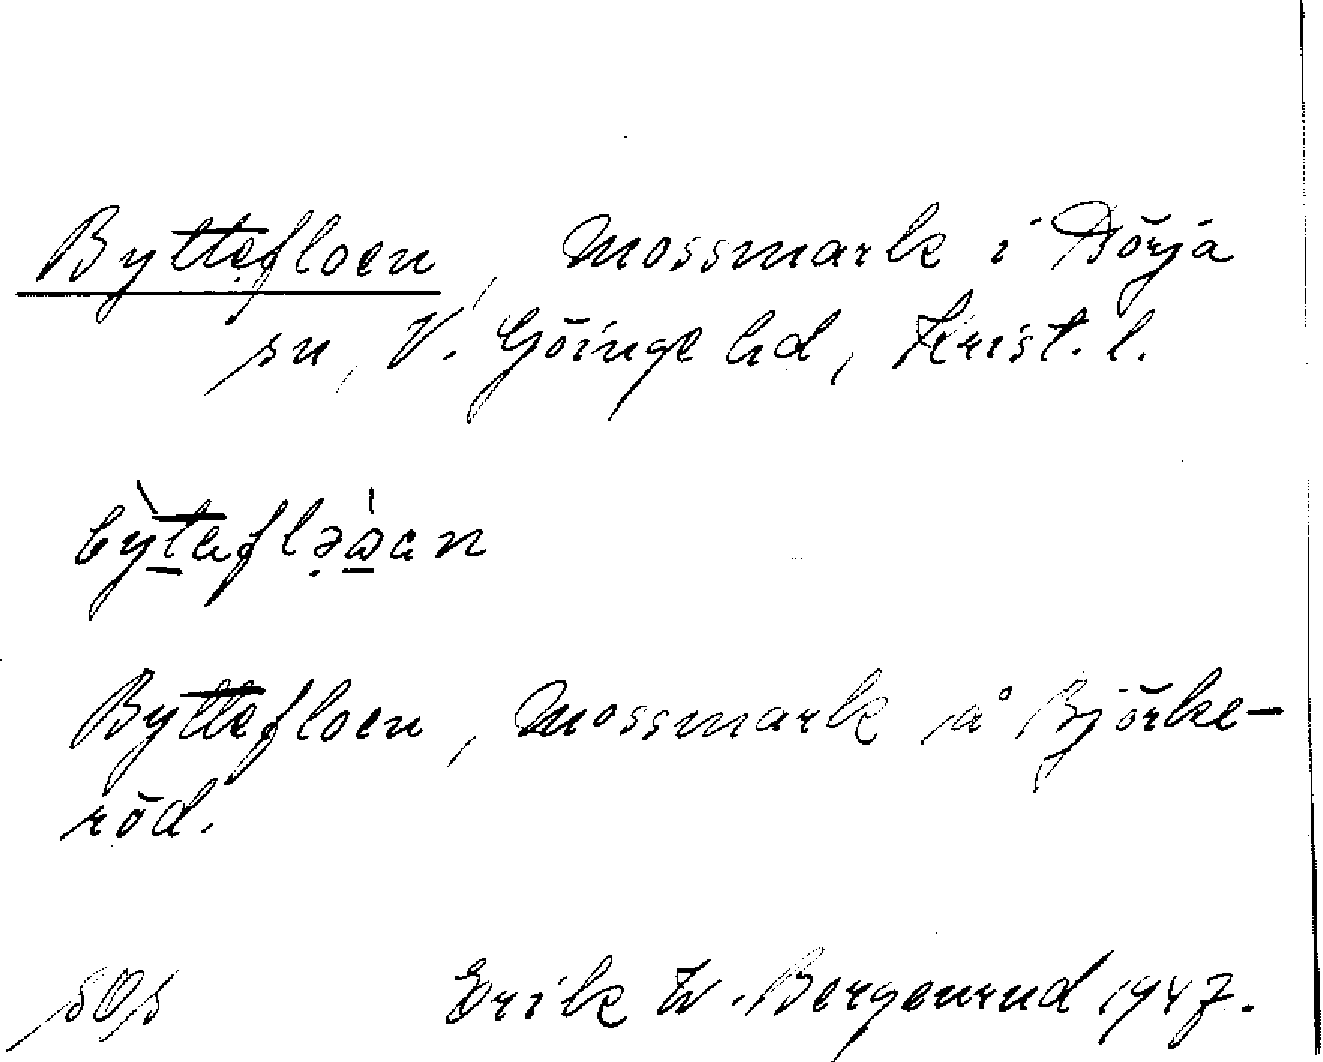 Byttefloen, Mossmark i Nörja
sn, V. Göinge hd, Krist. l.
Byttefloen, Mossmark å Björke-
röd.
Erik W. Bergenrud 1947.